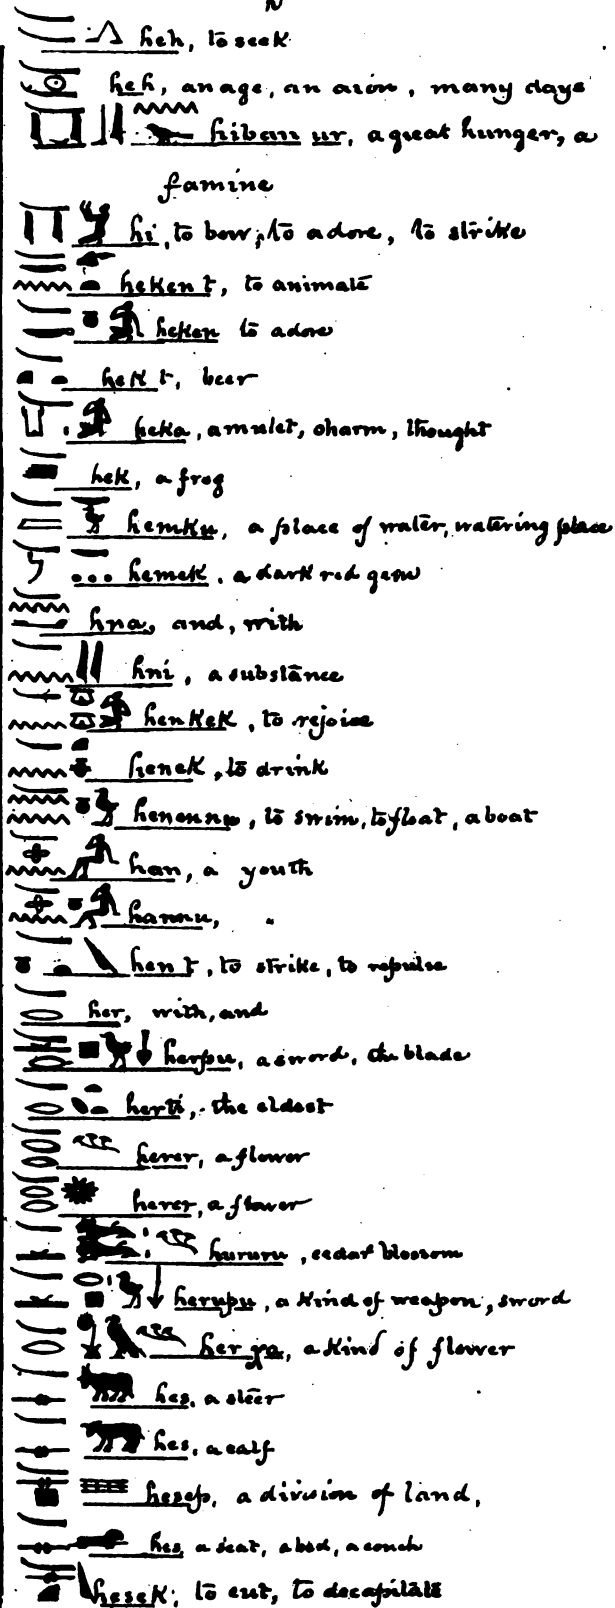 heh, to seek
heh, an age, an aion, many days
hiban ur, a great hunger, a
famine
hi, to bow, to adore, to strike
heken t, to animate
heken to adore
hek t, beer
heka, amulet, charm, thought
hek, a frog
hemku, a place of water, watering place
hemek, a dark red gem
hna, and, with
hni, a substance
henkek, to rejoice
henek, to drink
henennu, to swim, to float, a boat
han, a youth
hannu, "
hen t, to strike, to repulse
her, with, and
herpu, a sword, the blade
herti, the eldest
herer, a flower
herer, a flower
hururu, cedar blossom
herupu, a kind of weapon, sword
her, a kind of flower
hes, a steer
hes, a calf
hesep, a division of land,
hes a seat, a bed, a couch
hesek; to cut, to decapitate